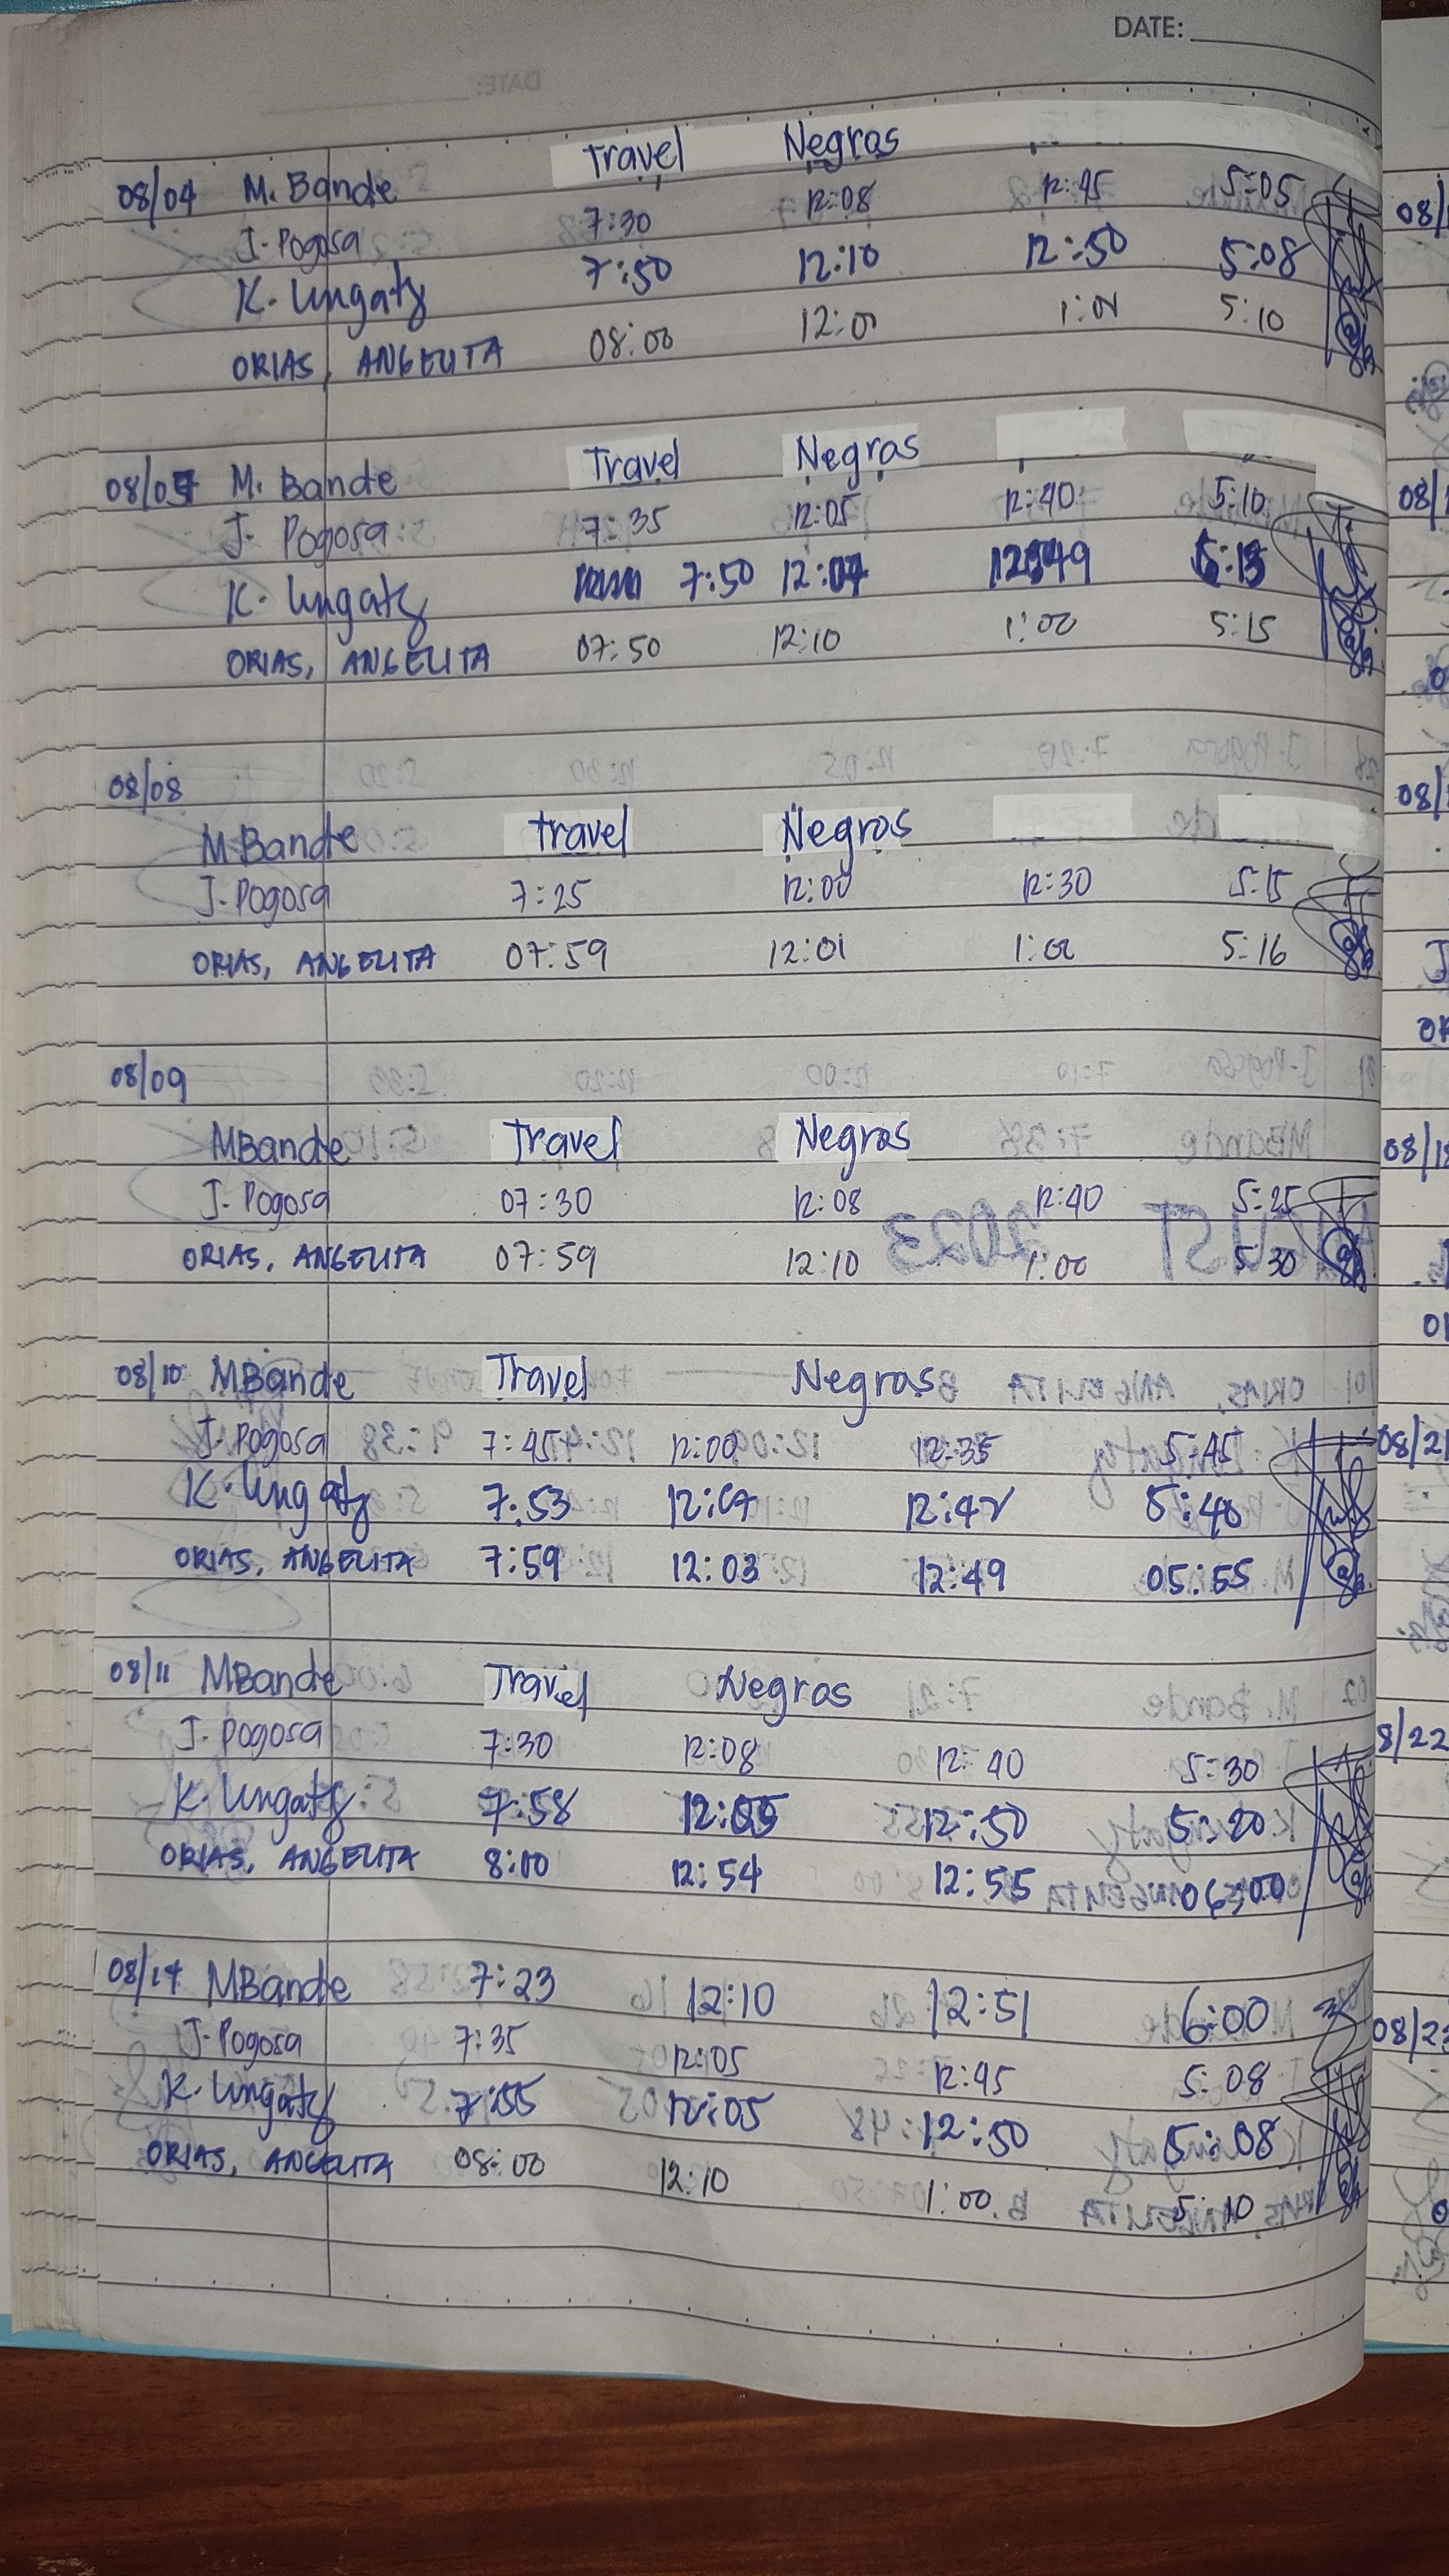 DATE:
08/04 M. Bande Travel Negros
J. Pogosa 7:30 12:08 12:45 5:05
K. Ungaty 7:50 12:10 12:50 5:08
ORIAS, ANGELITA 08:00 12:01 1:01 5:10
08/07 M. Bande Travel Negros
J. Pogosa 7:35 12:05 12:40 5:10
K. Ungaty 7:50 12:07 12:49 5:13
ORIAS, ANGELITA 07:50 12:10 1:00 5:15
08/08
MBande Travel Negros
J. Pogosa 7:25 12:00 12:30 5:15
ORIAS, ANGELITA 07:59 12:01 1:00 5:16
08/09
MBande Travel Negros
J. Pogosa 07:30 12:08 12:40 5:25
ORIAS, ANGELITA 07:59 12:10 1:00 5:30
08/10 MBande Travel Negros
J. Pogosa 7:45 12:00 12:35 5:45
K. Ungaty 7:53 12:07 12:42 5:40
ORIAS, ANGELITA 7:59 12:03 12:49 05:55
08/11 MBande Travel Negros
J. Pogosa 7:30 12:08 12:40 5:30
K. Ungaty 7:58 12:05 12:50 5:20
ORIAS, ANGELITA 8:00 12:54 12:55 06:00
08/14 MBande 7:23 12:10 12:51 6:00
J. Pogosa 7:35 12:05 12:45 5:08
K. Ungaty 7:55 12:05 12:50 5:08
ORIAS, ANGELITA 08:00 12:10 1:00 5:10